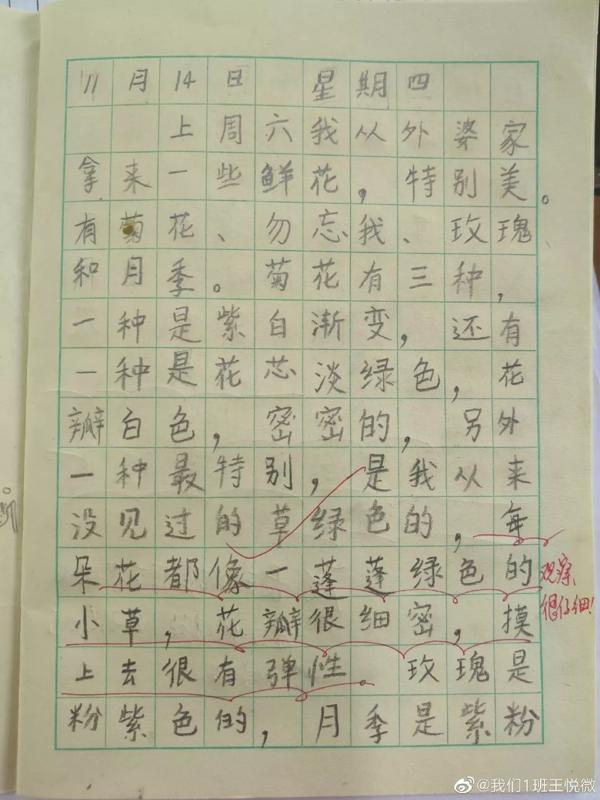 11月14日 星期四
上周六我从外婆家
拿来一些鲜花，特别美。
有菊花、勿忘我、玫瑰、
和月季。菊花有三种，
一种是紫白渐变，还有
一种是花芯淡绿色，花
瓣白色，密密的，另外
一种最特别，是我从来
没见过的草绿色的，每
朵花都像一蓬蓬绿色的
小草，花瓣很细密，摸
上去很有弹性。玫瑰是
粉紫色的，月季是紫粉
观察
很仔细！
@我们1班王悦微